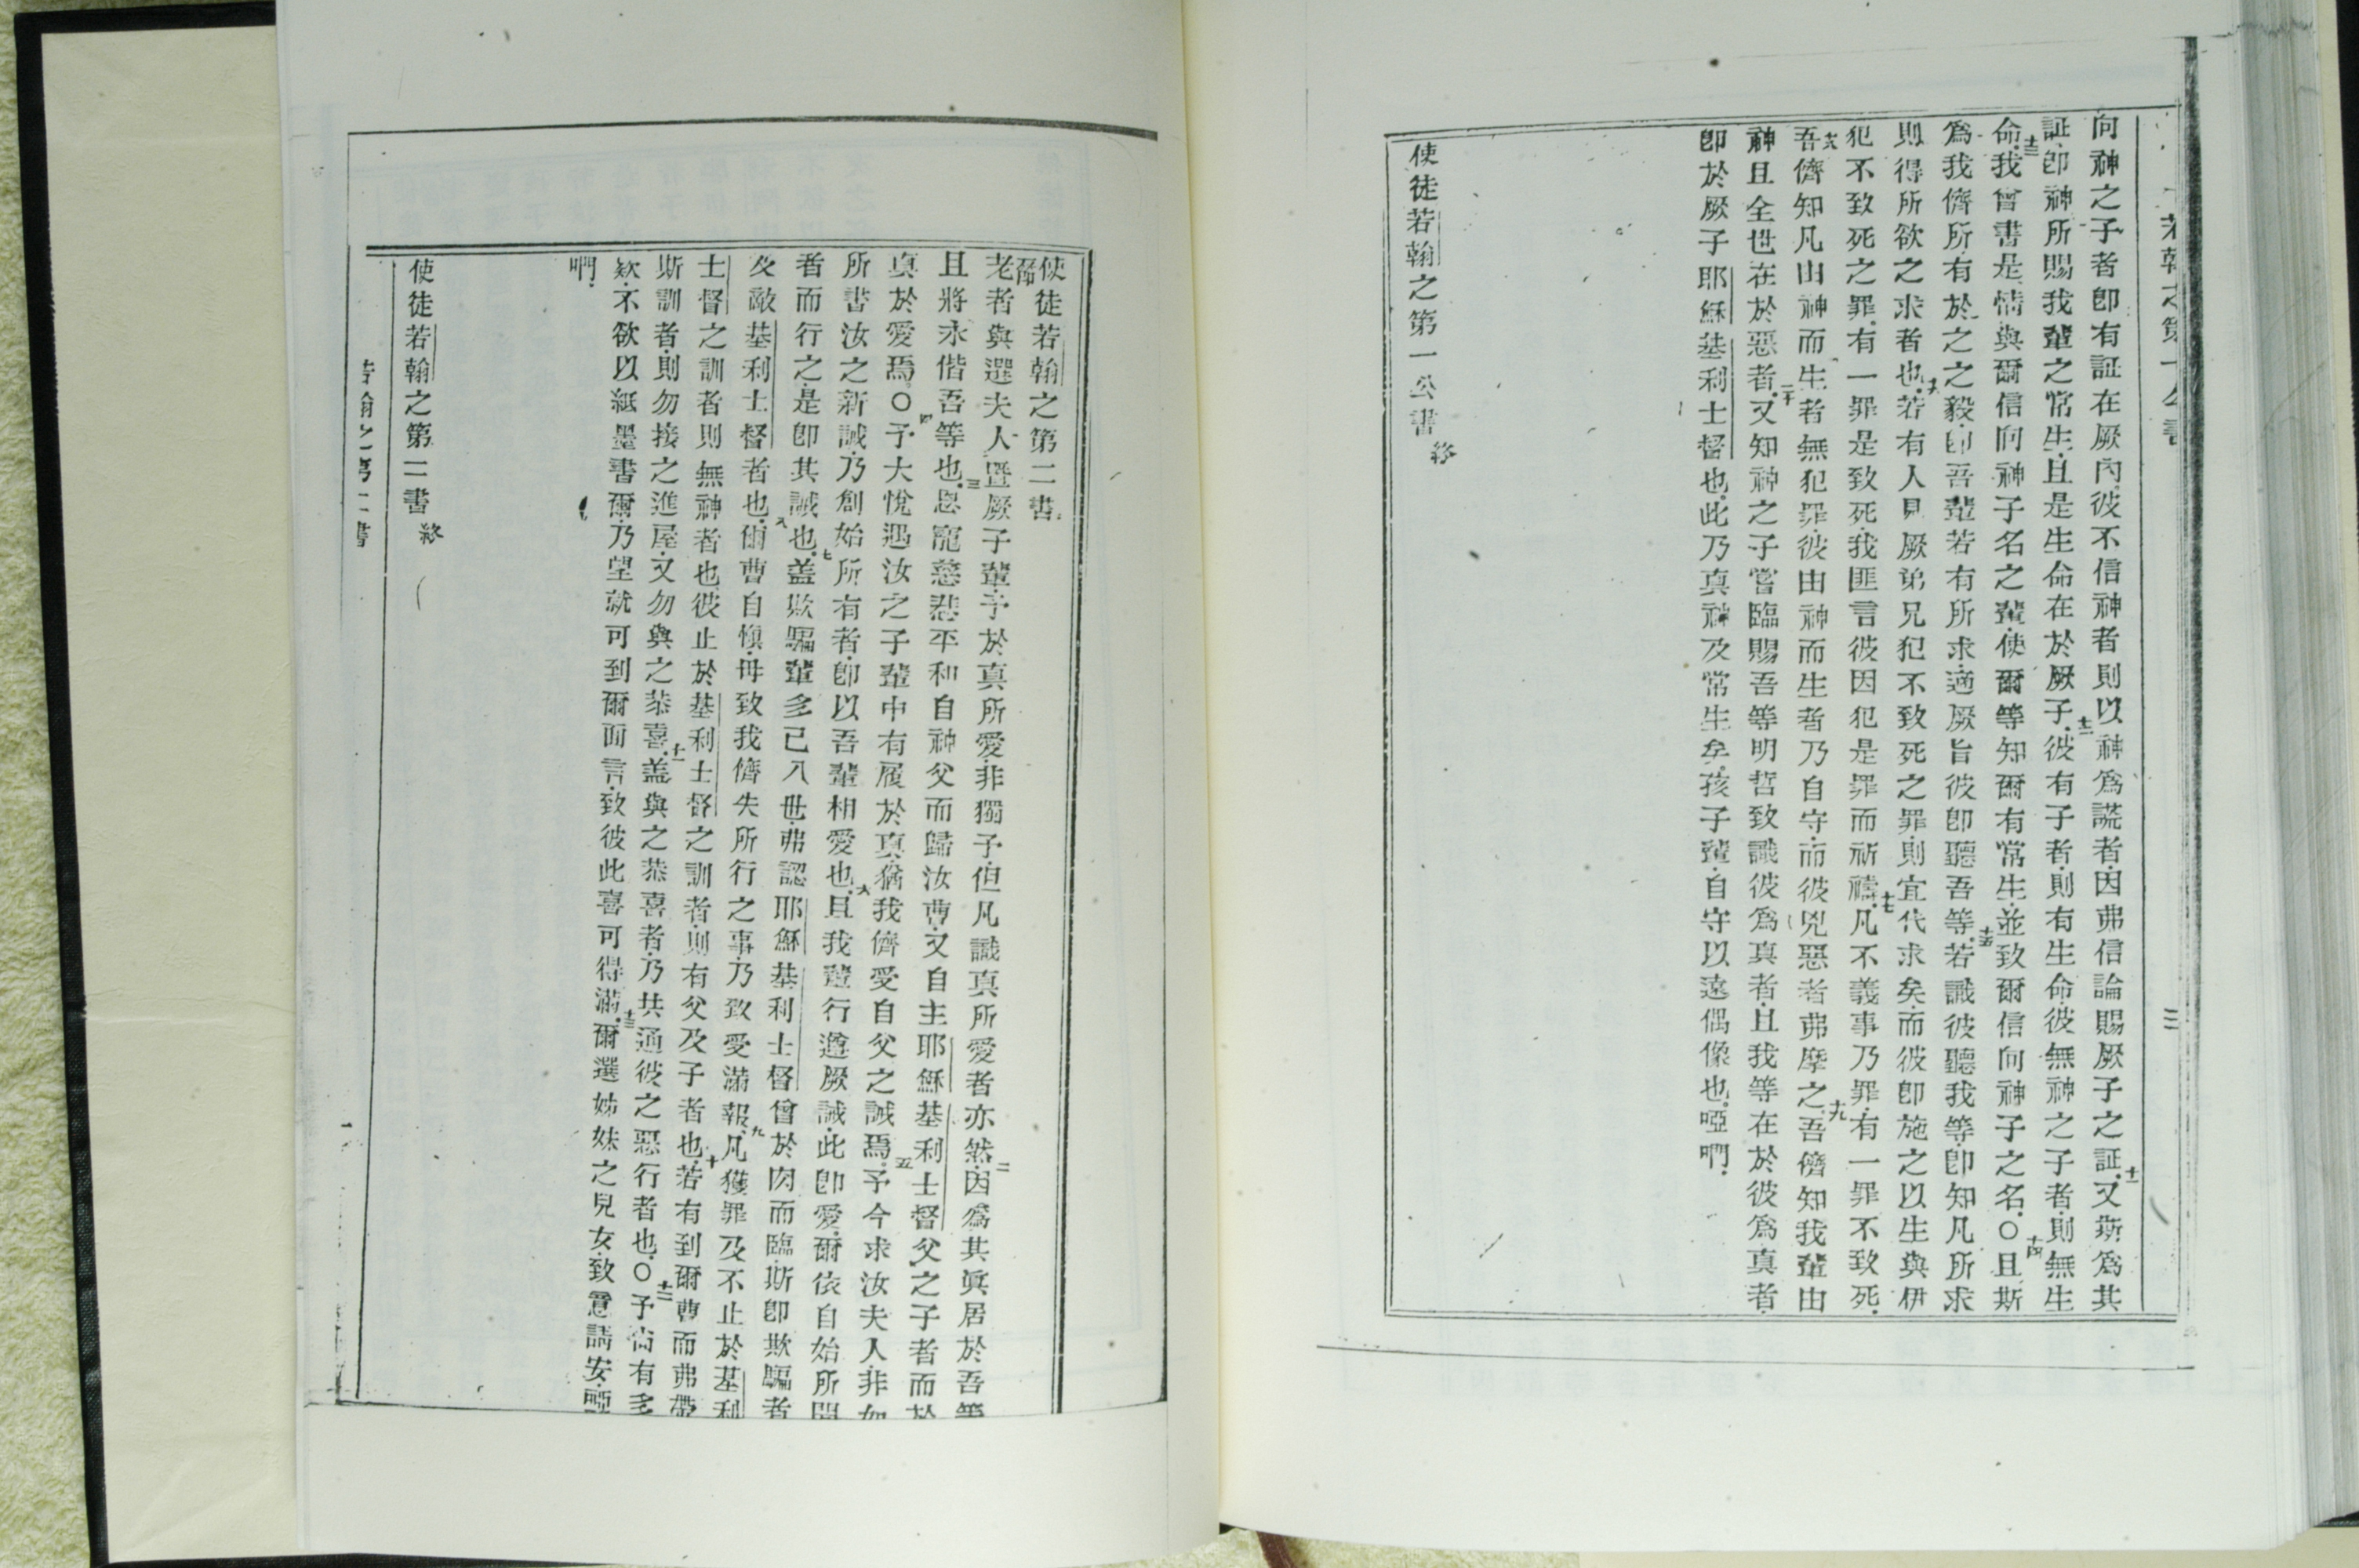 若翰之第一公書 三
向神之子者卽有証在厥內.彼不信神者則以神爲謊者.因弗信論賜厥子之証.十一又斯爲其
証.卽神所賜我輩之常生.且是生命在於厥子.十二彼有子者.則有生命.彼無神之子者.則無生
命.十三我曾書是情與爾信向神子名之輩.使爾等知爾有常生.並致爾信向神子之名.〇十四且斯
爲我儕所有於之之毅.卽吾輩若有所求.適厥旨彼卽聽吾等.十五若識彼聽我等.卽知凡所求
則得所欲之求者也.十六若有人見厥弟兄犯不致死之罪.則宜代求矣.而彼卽施之以生與伊
犯不致死之罪.有一罪是致死.我匪言彼因犯是罪而祈禱.十七凡不義事乃罪.有一罪不致死.
十八吾儕知凡由神而生者無犯罪.彼由神而生者乃自守.而彼兇惡者弗摩之.十九吾儕知我輩由
神且全世在於惡者.二十又知神之子嘗臨賜吾等明哲致識彼爲真者.且我等在於彼爲真者.
卽於厥子耶穌基利士督也.此乃真神及常生矣.孩子輩.自守以遠偶像也.啞們.
使徒若翰之第一公書 終
使徒若翰之第二書.
老者與選夫人曁厥子輩.予於真所愛.非獨予.但凡識真所愛者亦然.二因爲其眞居於吾等
且將永偕吾等也.三恩寵慈悲平和自神父而歸汝曹.又自主耶穌基利士督父之子者而於
真於愛焉.〇四予大悅遇汝之子輩中有履於真.猶我儕受自父之誡焉.五予今求汝夫人.非如
所書汝之新誡.乃創始所有者.卽以吾輩相愛也.六且我輩行遵厥誡.此卽愛.爾依自始所聞
者而行之.是卽其誡也.七盖欺騙輩多已入世.弗認耶穌基利士督曾於肉而臨.斯卽欺騙者
及敵基利士督者也.八爾曹自愼.毋致我儕失所行之事.乃致受滿報.九凡獲罪及不止於基利
士督之訓者則無神者也.彼止於基利士督之訓者.則有父及子者也.十若有到爾曹而弗帶
斯訓者.則勿接之進屋.又勿與之恭喜.十一盖與之恭喜者.乃共通彼之惡行者也.〇十二予尙有多
欵.不欲以紙墨書爾.乃望就可到爾面言.致彼此喜可得滿.十三爾選姊妹之兒女.致意請安.啞
們.
使徒若翰之第二書 終
若翰之第二書